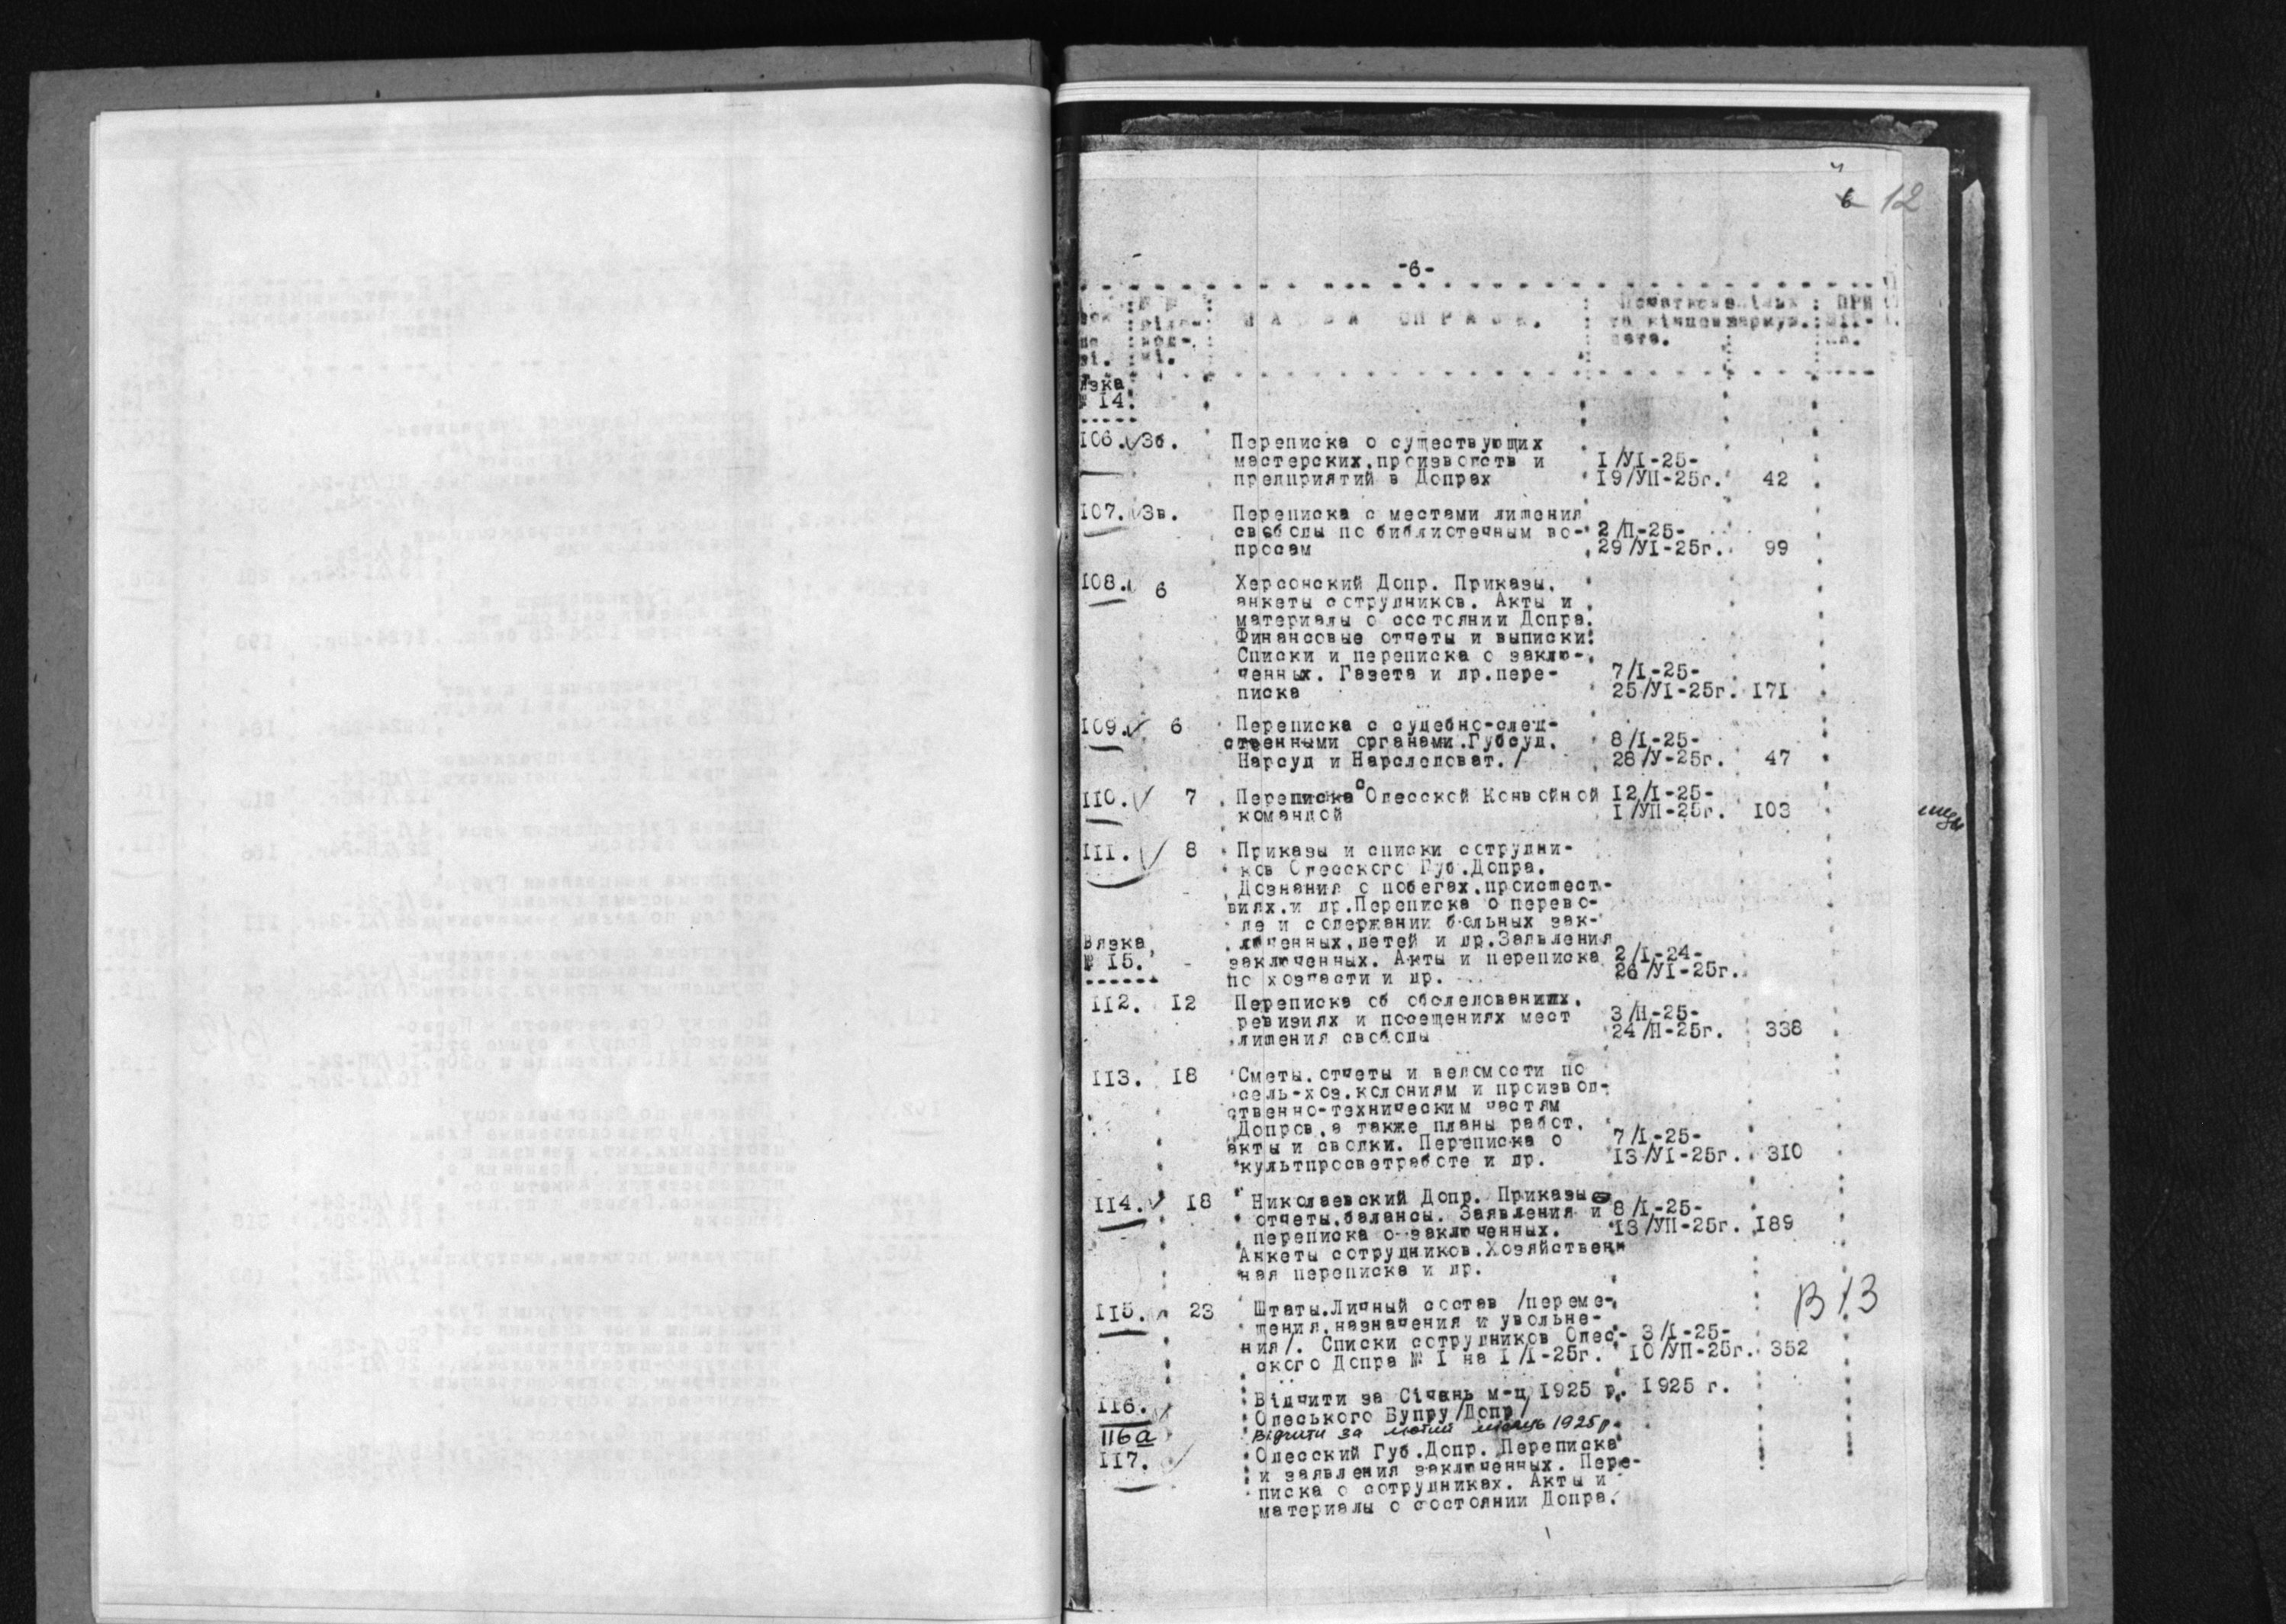 6 12
-6-
НАЗВА СПРАВИ.
№ 14.
106. 3б. Переписка о существующих
мастерских, производств и 1/УІ-25-
предприятий в Допрах 19/УП-25г. 42
107. 3в. Переписка с местами лишения
свободы по библиотечным во- 2/П-25-
просам 29/УІ-25г. 99
108. 6 Херсонский Допр. Приказы,
анкеты сотрудников. Акты и
материалы о состоянии Допра.
Финансовые отчеты и выписки.
Списки и переписка о заклю-
ченных. Газета и др.пере- 7/І-25-
писка 25/УІ-25г. 171
109. 6 Переписка с судебно-след-
ственными органами.Губсуд, 8/І-25-
Нарсуд и Нарследоват./ 28/У-25г. 47
110. 7 Переписка с Одесской Конвойной 12/І-25-
командой 1/УП-25г. 103
111. 8 Приказы и списки сотрудни-
ков Одесского Губ.Допра.
Дознания о побегах,происшест-
виях.и др.Переписка о перево-
де и содержании больных зак-
Вязка люченных,детей и др.Заявления
№ 15. заключенных. Акты и переписка 2/І-24-
по хозчасти и др. 26/УІ-25г.
112. 12 Переписка об обследованиях,
ревизиях и посещениях мест 3/П-25-
лишения свободы 24/П-25г. 338
113. 18 Сметы,отчеты и ведомости по
сель-хоз.колониям и производ-
ственно-техническим частям
Допров,а также планы работ,
акты и сводки. Переписка о 7/І-25-
культпросветработе и др. 13/УІ-25г. 310
114. 18 Николаевский Допр. Приказы
отчеты,балансы. Заявления и 8/І-25-
переписка о заключенных. 13/УП-25г. 189
Анкеты сотрудников.Хозяйствен
ная переписка и др.
В 13
115. 23 Штаты.Личный состав /переме-
щения,назначения и увольне-
ния/. Списки сотрудников Одес- 3/І-25-
ского Допра № 1 на 1/І-25г. 10/УП-25г. 352
116. Відчити за Січень м-ц 1925 р. 1925 г.
Одеського Бупру/Допр/
116а Відчити за лютий місяць 1925р.
117. Одесский Губ.Допр. Переписка
и заявления заключенных. Пере-
писка о сотрудниках. Акты и
материалы о состоянии Допра.